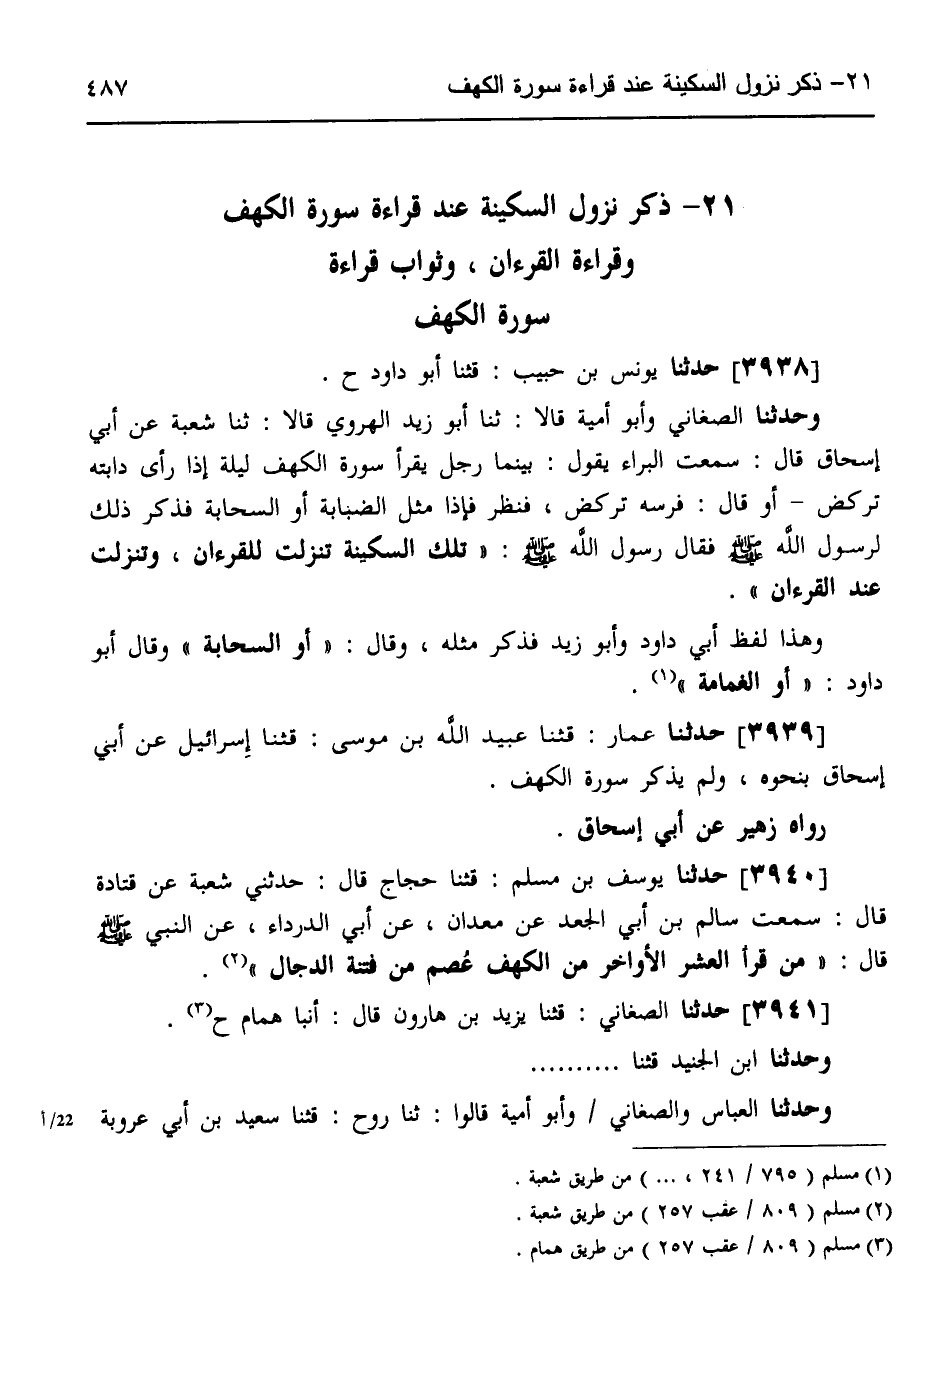 ٢١- ذكر نزول السكينة عند قراءة سورة الكهف ٤٨٧
٢١- ذكر نزول السكينة عند قراءة سورة الكهف
وقراءة القرءان ، وثواب قراءة
سورة الكهف
[٣٩٣٨] حدثنا يونس بن حبيب : قثنا أبو داود ح .
وحدثنا الصغاني وأبو أمية قالا : ثنا أبو زيد الهروي قالا : ثنا شعبة عن أبي
إسحاق قال : سمعت البراء يقول : بينما رجل يقرأ سورة الكهف ليلة إذا رأى دابته
تركض – أو قال : فرسه تركض ، فنظر فإذا مثل الضبابة أو السحابة فذكر ذلك
لرسول اللَّه ﷺ فقال رسول اللَّه ﷺ : « تلك السكينة تنزلت للقرءان ، وتنزلت
عند القرءان » .
وهذا لفظ أبي داود وأبو زيد فذكر مثله ، وقال : « أو السحابة » وقال أبو
داود : « أو الغمامة »(١) .
[٣٩٣٩] حدثنا عمار : قثنا عبيد اللَّه بن موسى : قثنا إِسرائيل عن أبي
إسحاق بنحوه ، ولم يذكر سورة الكهف .
رواه زهير عن أبي إسحاق .
[٣٩٤٠] حدثنا يوسف بن مسلم : قثنا حجاج قال : حدثني شعبة عن قتادة
قال : سمعت سالم بن أبي الجعد عن معدان ، عن أبي الدرداء ، عن النبي ﷺ
قال : « من قرأ العشر الأواخر من الكهف عُصم من فتنة الدجال »(٢) .
[٣٩٤١] حدثنا الصغاني : قثنا يزيد بن هارون قال : أنبا همام ح(٣) .
وحدثنا ابن الجنيد قثنا ..........
وحدثنا العباس والصغاني / وأبو أمية قالوا : ثنا روح : قثنا سعيد بن أبي عروبة 22/أ
(١) مسلم ( ٧٩٥ / ٢٤١ ، ... ) من طريق شعبة .
(٢) مسلم ( ٨٠٩ / عقب ٢٥٧ ) من طريق شعبة .
(٣) مسلم ( ٨٠٩ / عقب ٢٥٧ ) من طريق همام .